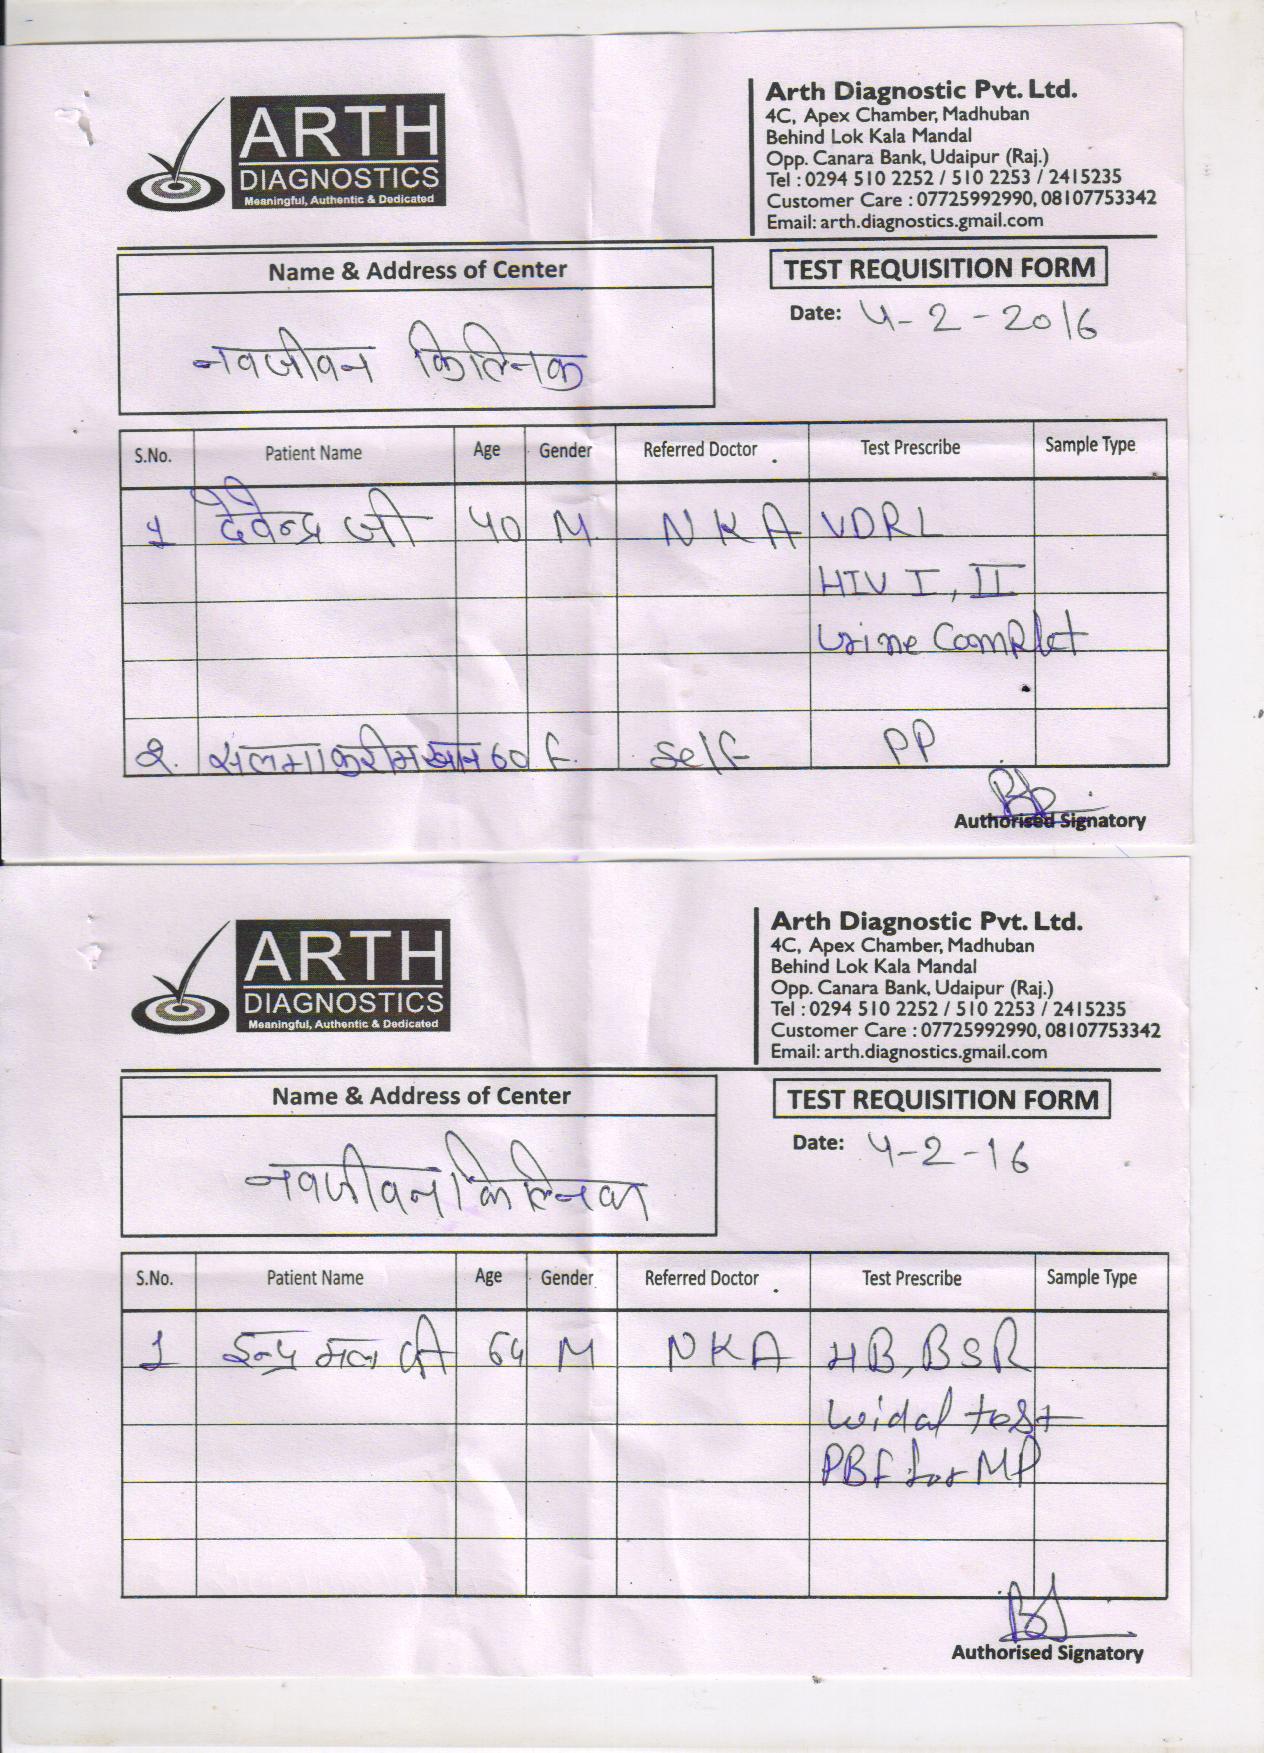 ARTH
DIAGNOSTICS
Meaningful, Authentic & Dedicated
Arth Diagnostic Pvt. Ltd.
4C, Apex Chamber, Madhuban
Behind Lok Kala Mandal
Opp. Canara Bank, Udaipur (Raj.)
Tel : 0294 510 2252 / 510 2253 / 2415235
Customer Care : 07725992990, 08107753342
Email: arth.diagnostics.gmail.com
Name & Address of Center
TEST REQUISITION FORM
Date: 4-2-2016
नवजीवन किल्निक
S.No. Patient Name Age Gender Referred Doctor Test Prescribe Sample Type
1 देवेन्द्र जी 40 M. NKA VDRL
HIV I, II
Urine Complet
2. सलमा करीम खान 60 F. Self PP
Authorised Signatory
ARTH
DIAGNOSTICS
Meaningful, Authentic & Dedicated
Arth Diagnostic Pvt. Ltd.
4C, Apex Chamber, Madhuban
Behind Lok Kala Mandal
Opp. Canara Bank, Udaipur (Raj.)
Tel : 0294 510 2252 / 510 2253 / 2415235
Customer Care : 07725992990, 08107753342
Email: arth.diagnostics.gmail.com
Name & Address of Center
TEST REQUISITION FORM
Date: 4-2-16
नवजीवन किल्निक
S.No. Patient Name Age Gender Referred Doctor Test Prescribe Sample Type
1 इन्द्र मल जी 64 M NKA HB, BSR
Widal test
PBF for MP
Authorised Signatory